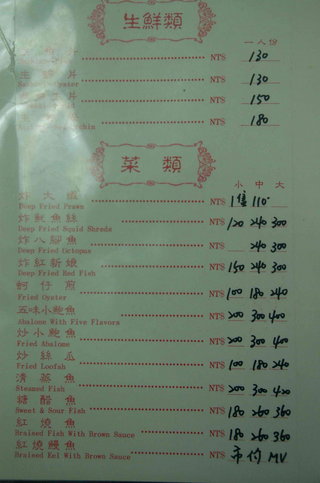 生鮮類
一人份
片 NT$ 130
片 NT$ 130
片 NT$ 150
NT$ 180
菜類
小 中 大
炸大蝦 NT$ 1隻 110
Deep Fried Prawn
炸魷魚絲 NT$ 120 240 300
Deep Fried Squid Shreds
炸八腳魚 NT$ 240 300
Deep Fried Octopus
炸紅新娘 NT$ 150 240 300
Deep Fried Red Fish
蚵仔煎 NT$ 100 180 240
Fried Oyster
五味小鮑魚 NT$ 200 300 400
Abalone With Five Flavors
炒小鮑魚 NT$ 200 300 400
Fried Abalone
炒絲瓜 NT$ 100 180 240
Fried Loofah
清蒸魚 NT$ 200 300 420
Steamed Fish
糖醋魚 NT$ 180 260 360
Sweet & Sour Fish
紅燒魚 NT$ 180 260 360
Braised Fish With Brown Sauce
紅燒鰻魚 NT$ 市价 MV
Braised Eel With Brown Sauce